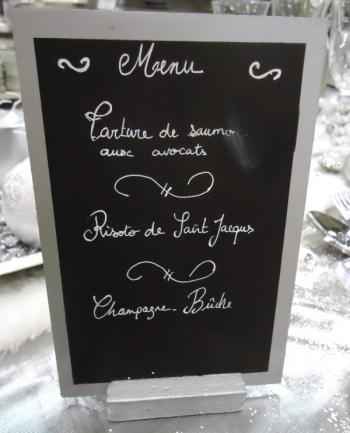 Menu
Tartare de saumon
avec avocats
Risoto de Saint Jacques
Champagne - Bûche